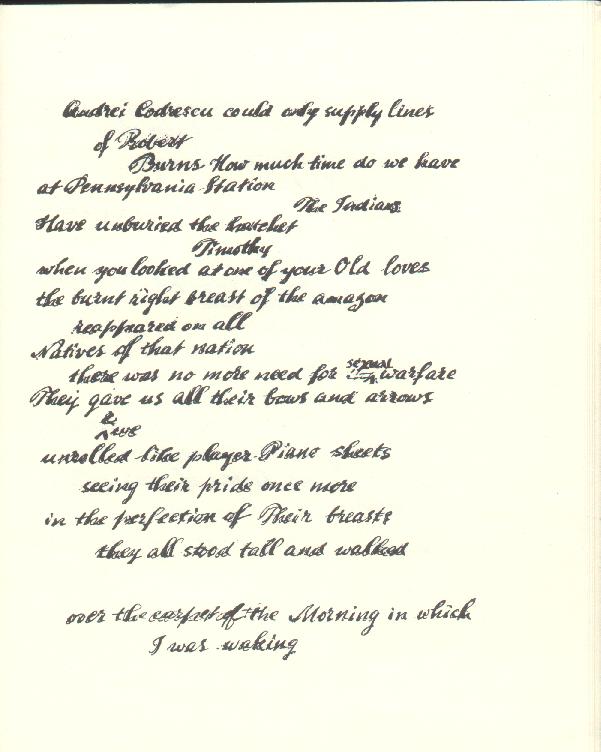 Andrei Codrescu could only supply lines
of Robert
Burns How much time do we have
at Pennsylvania Station
The Indians
Have unburied the hatchet
Timothy
when you looked at one of your Old loves
the burnt right breast of the amazon
reappeared on all
Natives of that nation
there was no more need for sexual warfare
They gave us all their bows and arrows
& we
unrolled like player Piano sheets
seeing their pride once more
in the perfection of Their breasts
they all stood tall and walked
over the carpet of the Morning in which
I was waking